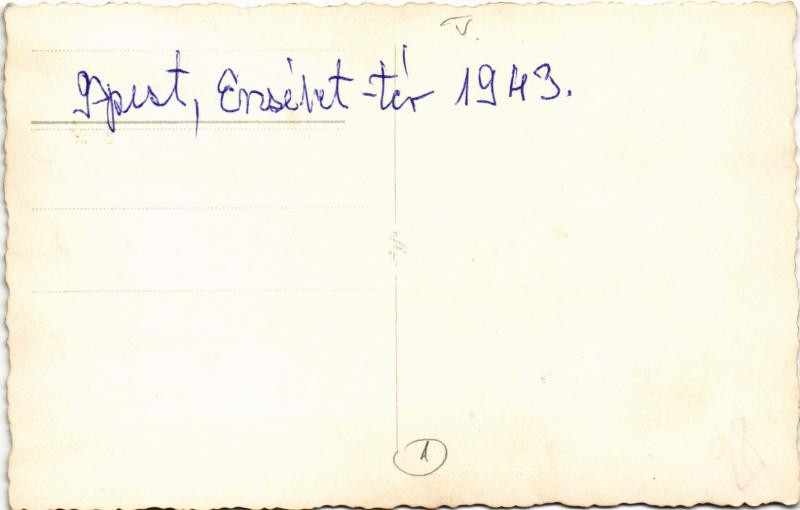 V.
Bpest, Erzsébet-tér 1943.
1
28